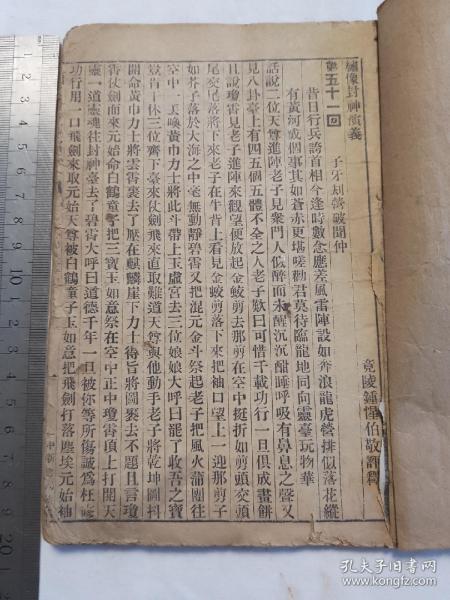 繡像封神演義
第五十一回　子牙刼營破聞仲
竟陵鍾惺伯敬評釋
昔日行兵誇首相今逢時數念應差風雷陣設如奔浪龍虎營排似落花縱
有黃河成個事其如蒼赤更堪嗟勸君莫待臨龍地同向靈臺玩物華
話說二位天尊進陣老子見衆門人似醉而未醒沉沉酣睡呼吸有鼻息之聲又
見八卦臺上有四五個五體不全之人老子歎曰可惜千載功行一旦俱成畫餅
且說瓊霄見老子進陣來觀望便放起金蛟剪去那剪在空中挺折如剪頭交頭
尾交尾落將下來老子在牛背上看見金蛟剪落下來把袖口望上一迎那剪子
如芥子落於大海之中毫無動靜碧霄又把混元金斗祭起老子把風火蒲團往
空中一丟喚黃巾力士將此斗帶上玉虛宮去三位娘娘大呼曰罷了收吾之寶
豈肯干休三位齊下臺來仗劍飛來直取難道天尊與他動手老子將乾坤圖抖
開命黃巾力士將雲霄裹去了壓在麒麟崖下力士得旨將圖裹去不題且言瓊
霄仗劍而來元始命白鶴童子把三寶玉如意祭在空中正中瓊霄頂上打開天
靈一道靈魂往封神臺去了碧霄大呼曰道德千年一旦被你等所傷誠爲枉修
功行用一口飛劍來取元始天尊被白鶴童子玉如意把飛劍打落塵埃元始袖
20
孔夫子旧书网